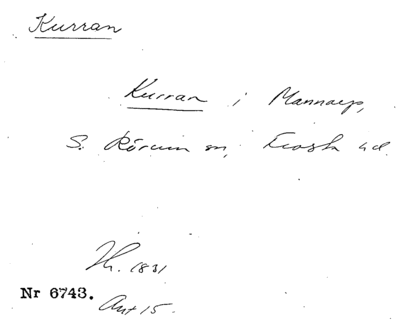 Kurran
Kurran i Mannarp,
S. Rörum sn, Frosta hd.
Hr. 1831
Nr 6743.
Ant 15.